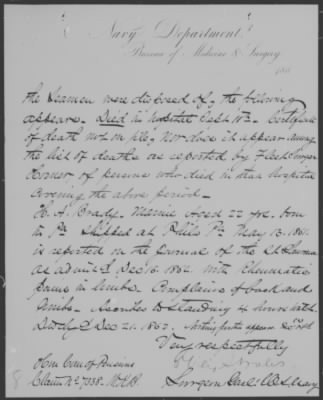 Navy Department,
Bureau of Medicine & Surgery
188
the Seamen were disposed of, the following
appears. Died in hospital Sept 11th. Certificate
of death not on file, nor does it appear among
the list of deaths as reported by Fleet Surgeon
of persons who died in that hospital
during the above period.
H. A. Brady. Marine Aged 22 yrs. born
in Pa Shipped at Phila Pa May 13. 1861.
is reported on the Journal of the
as admitd Dec 16. 1862. with Rheumatic
pains in limbs. Complains of back and
limbs. Ascribes to standing 4 hours watch.
Dec 21. 1862. Nothing further appears
Very respectfully
Hon Com of Pensions
Claim No 7338.
Surgeon Genl U.S. Navy